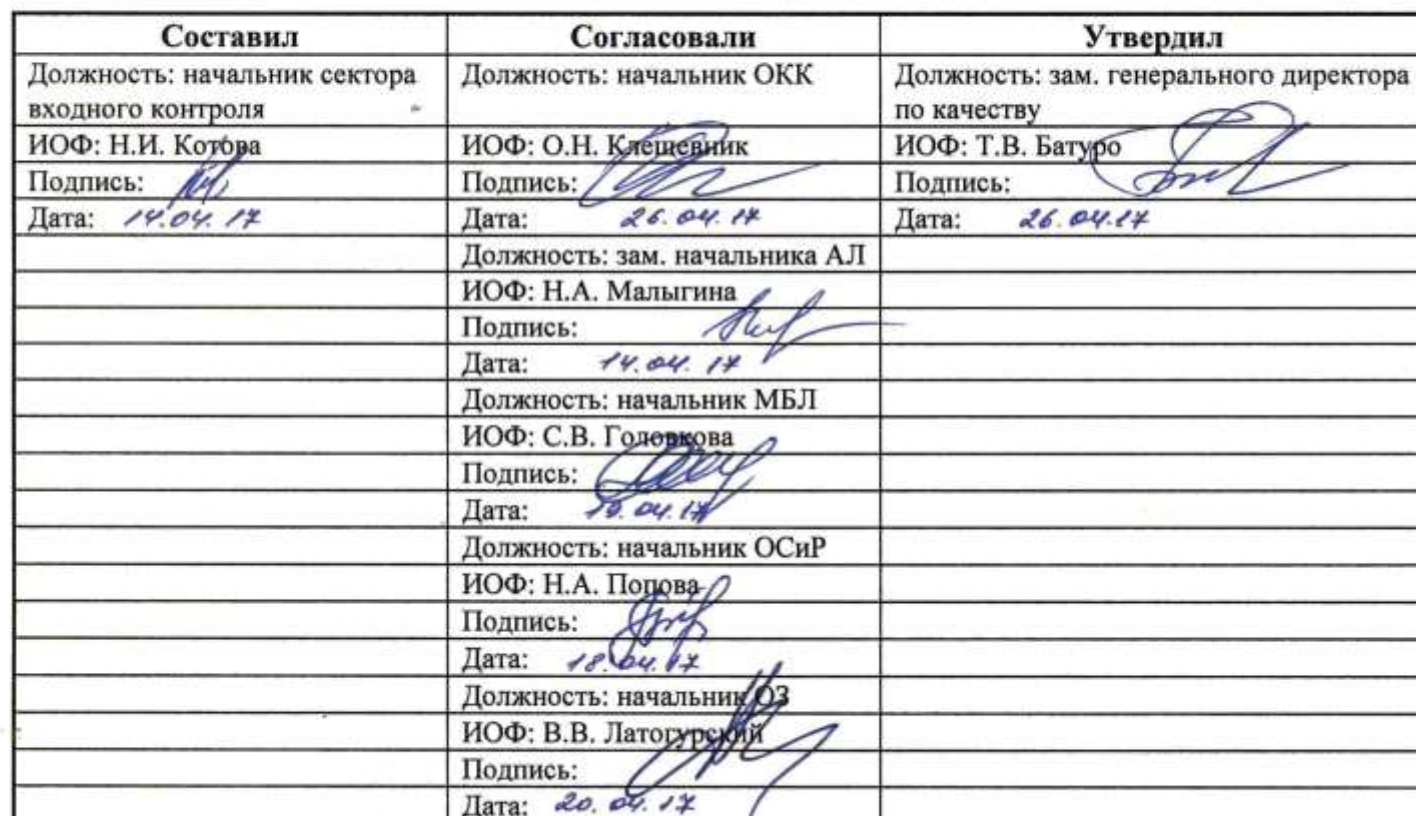 Составил Согласовали Утвердил
Должность: начальник сектора Должность: начальник ОКК Должность: зам. генерального директора
входного контроля по качеству
ИОФ: Н.И. Котова ИОФ: О.Н. Клещевник ИОФ: Т.В. Батуро
Подпись: Подпись: Подпись:
Дата: 14.04.17 Дата: 26.04.17 Дата: 26.04.17
Должность: зам. начальника АЛ
ИОФ: Н.А. Малыгина
Подпись:
Дата: 14.04.17
Должность: начальник МБЛ
ИОФ: С.В. Головкова
Подпись:
Дата: 19.04.17
Должность: начальник ОСиР
ИОФ: Н.А. Попова
Подпись:
Дата: 18.04.17
Должность: начальник ОЗ
ИОФ: В.В. Латогурский
Подпись:
Дата: 20.04.17